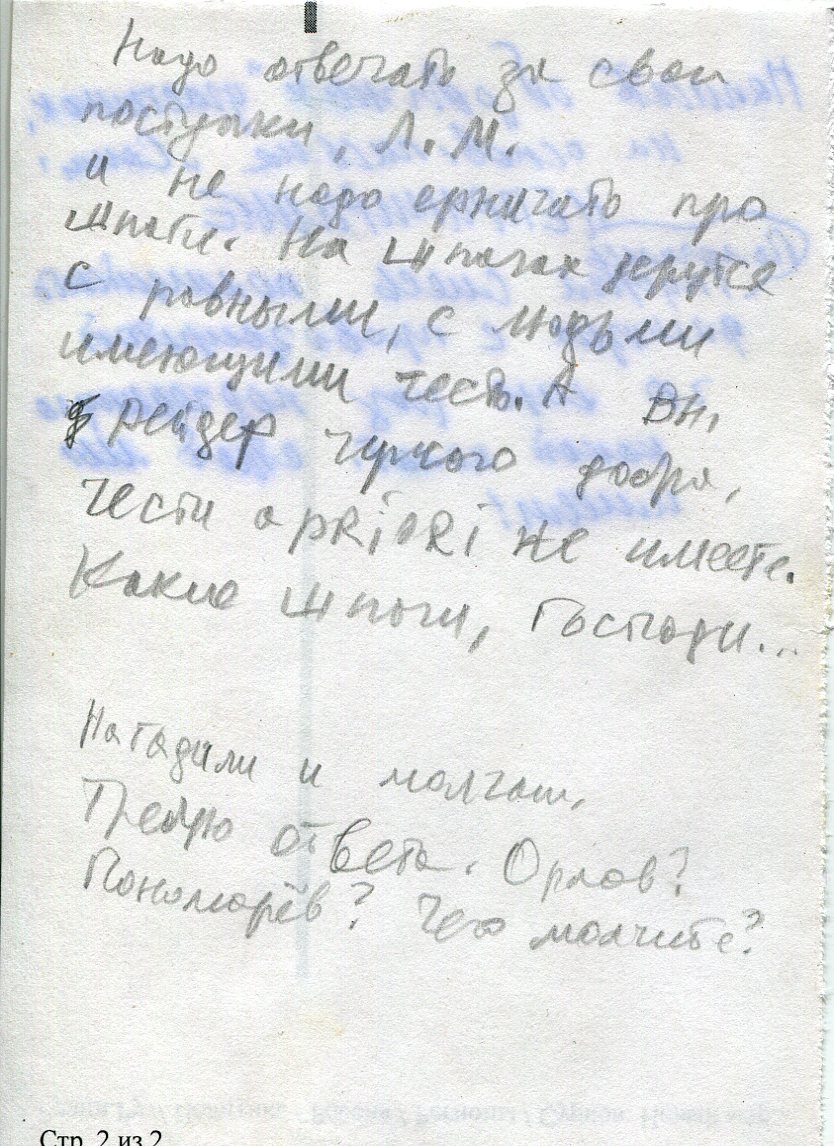 Надо отвечать за свои
поступки, Л.М.
и не надо ерничать про
шпаги. На шпагах дерутся
с равными, с людьми
имеющими честь. А Вы,
рейдер чужого добра,
чести a pRioRi не имеете.
Какие шпаги, Господи...
Нагадили и молчат.
Требую ответа. Орлов?
Пономарёв? Чего молчите?
Стр. 2 из 2